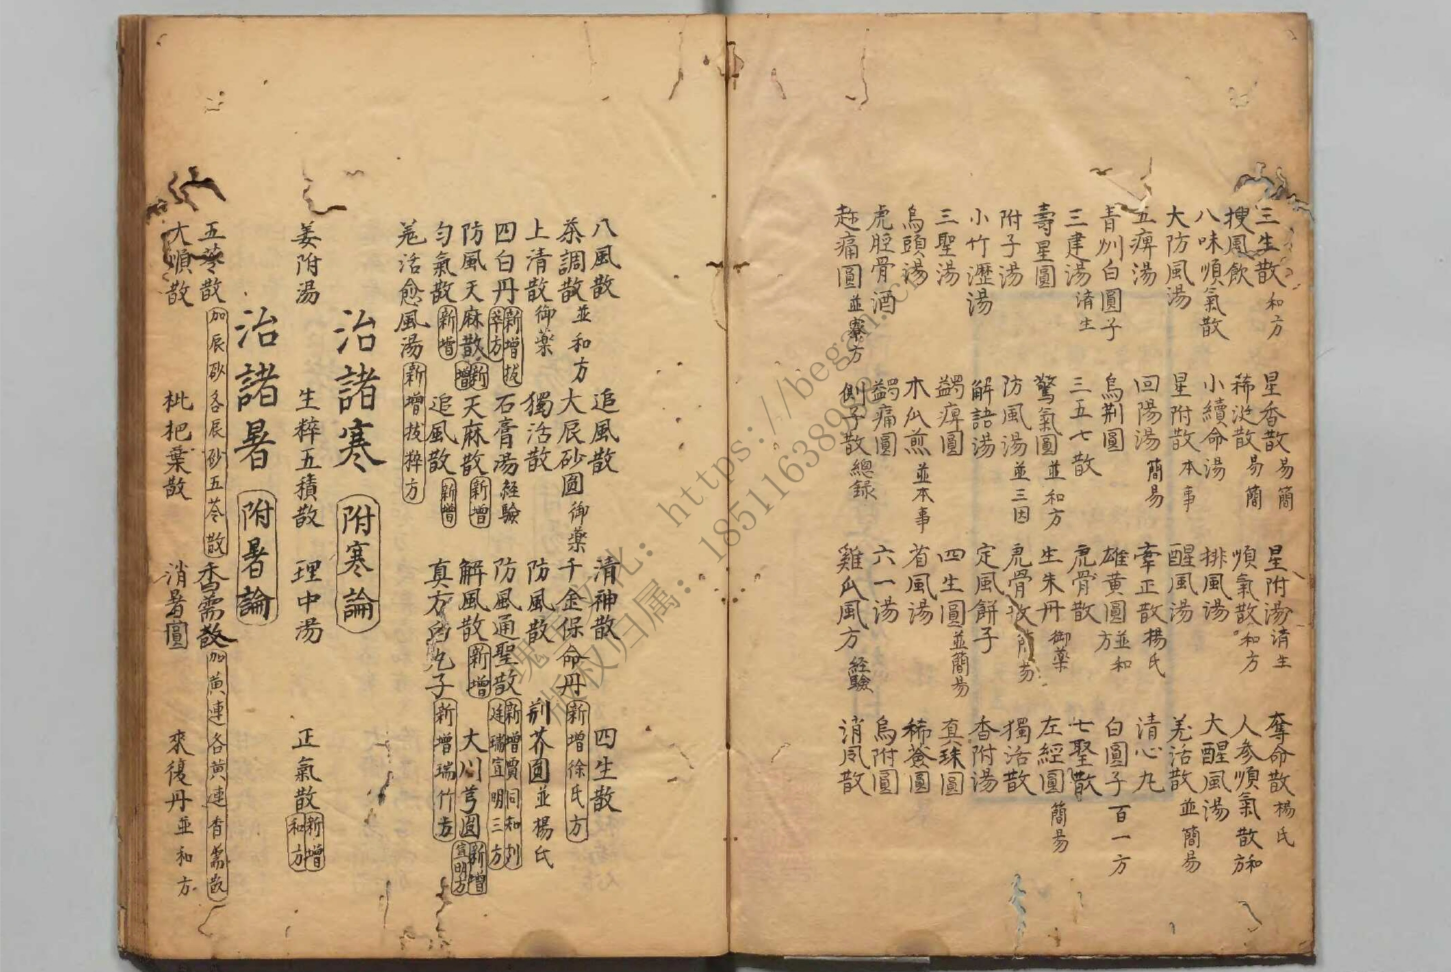 三生散 和方 星香散 易簡 星附湯 済生 奪命散 楊氏
搜風飲 稀涎散 易簡 順氣散 和方 人參順氣散 和方
八味順氣散 小續命湯 排風湯 大醒風湯
大防風湯 星附散 本事 醒風湯 羌活散 並簡易
五痺湯 回陽湯 簡易 牽正散 楊氏 清心丸
青州白圓子 烏荊圓 雄黃圓 並和方 白圓子 百一方
三建湯 済生 三五七散 虎骨散 七聖散
壽星圓 驚氣圓 並和方 生朱丹 御藥 左經圓 簡易
附子湯 防風湯 並三因 虎骨散 獨活散
小竹瀝湯 解語湯 定風餅子 香附湯
三聖湯 蠲痺圓 四生圓 並簡易 真珠圓
烏頭湯 木瓜煎 並本事 省風湯 稀薟圓
虎脛骨酒 蠲痛圓 六一湯 烏附圓
趁痛圓 並濟方 側子散 總錄 雞瓜風方 經驗 消風散
八風散 追風散 清神散 四生散
茶調散 並和方 大辰砂圓 御藥 千金保命丹 新增徐氏方
上清散 御藥 獨活散 防風散 荊芥圓 並楊氏
四白丹 新增拔萃方 石膏湯 經驗 防風通聖散 新增賈同知刘廷瑞宣明三方
防風天麻散 新增 天麻散 新增 解風散 新增 大川芎圓 新增宣明方
勻氣散 新增 追風散 新增 真方烏龙子 新增瑞竹方
羌活愈風湯 新增拔粹方
治諸寒 附寒論
姜附湯 生粹五積散 理中湯 正氣散 新增和方
治諸暑 附暑論
五苓散 加辰砂名辰砂五苓散 香薷散 加黃連名黃連香薷散
大順散 枇杷葉散 消暑圓 來復丹 並和方
瑰宝文化：https://began.c
版权归属：18511638993